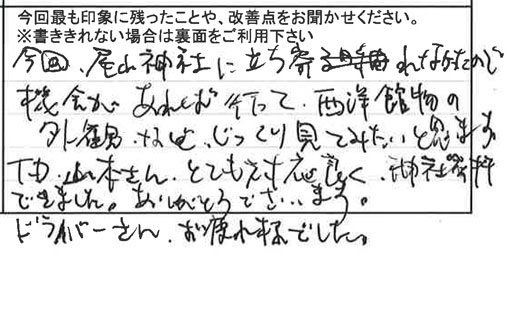 今回最も印象に残ったことや、改善点をお聞かせください。
※書ききれない場合は裏面をご利用下さい
今回、尾山神社に立ち寄れなかったので
機会があれば行って、西洋館物の
外観など、じっくり見てみたいと思います
山本さん、とても対応良く、神社
できました。ありがとうございます。
ドライバーさん、お疲れ様でした。